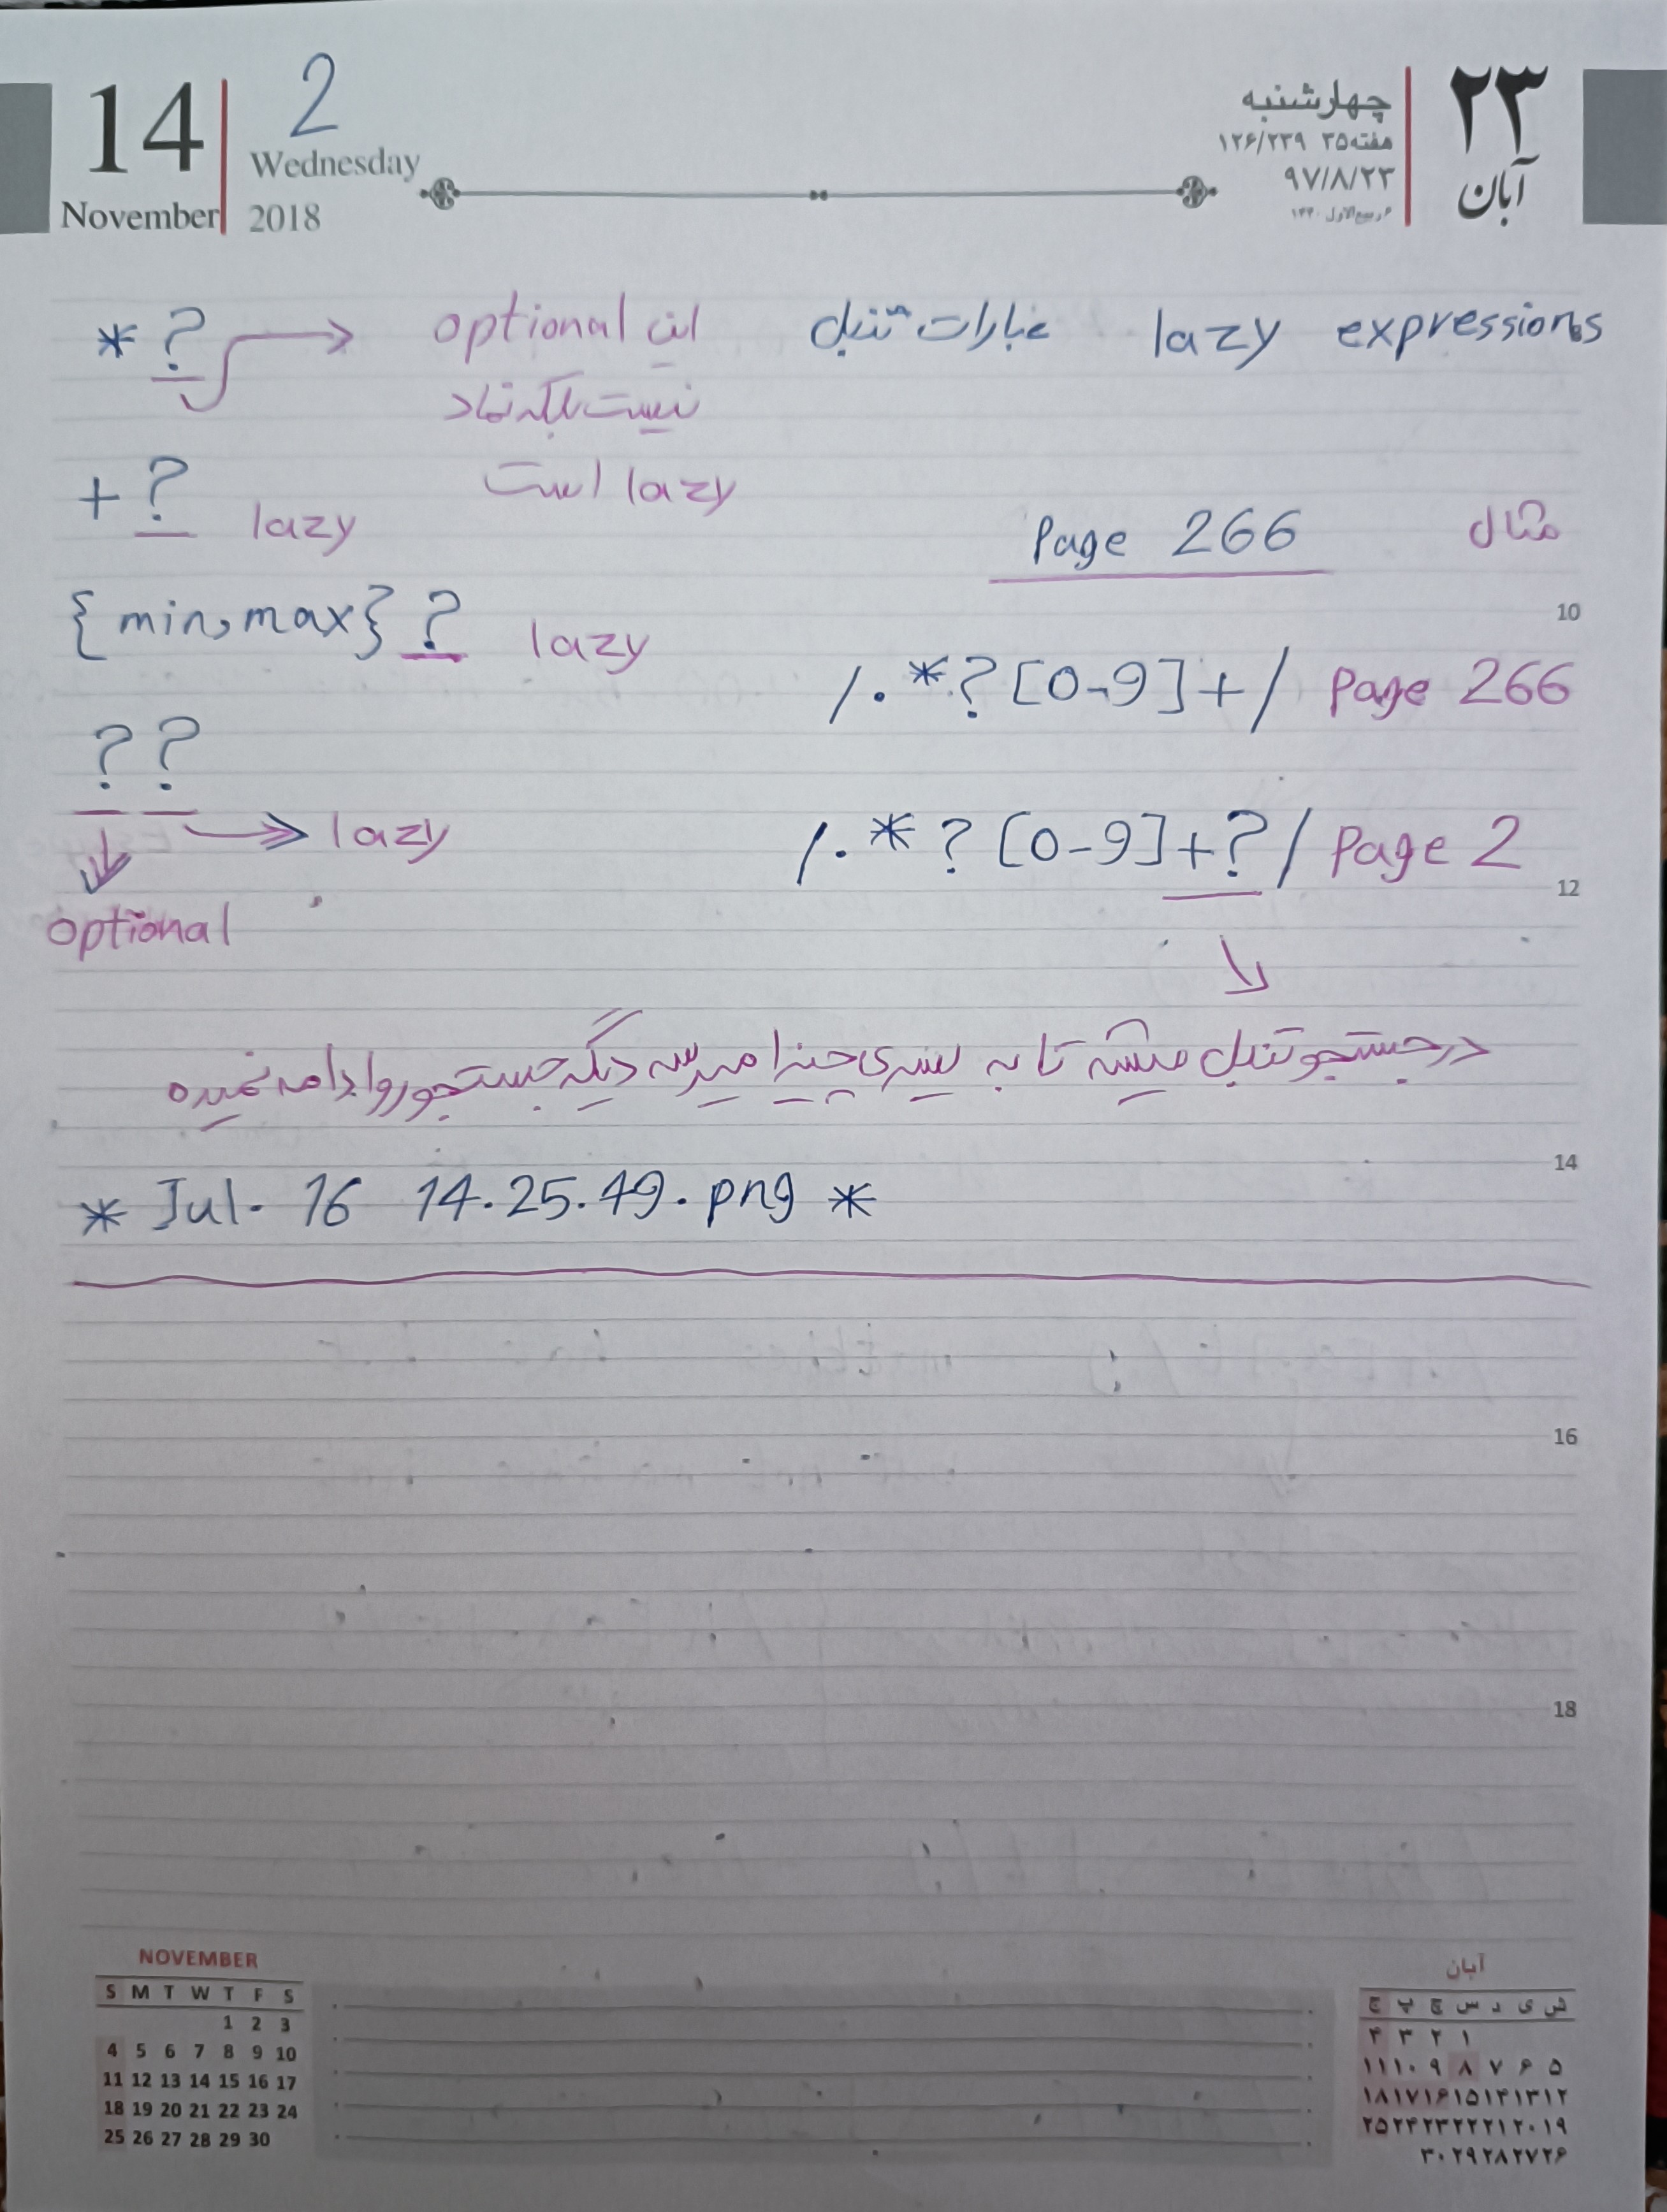 14 2 چهارشنبه ۲۳
Wednesday هفته ۳۵ ۱۲۶/۲۳۹
November 2018 ۹۷/۸/۲۳ آبان
۶ ربیع‌الاول ۱۴۴۰
lazy expressions عبارات تنبل
*? → این optional
نیست بلکه نماد
lazy است
+? lazy
مثال Page 266
10
{min,max}? lazy
/.*?[0-9]+/ Page 266
?? → lazy
↓
optional
/.*?[0-9]+?/ Page 2
12
↓
در جستجو تنبل میشه تا به یسری چیزا میرسه دیگه جستجو رو ادامه نمیده
14
* Jul. 16 14.25.49.png *
16
18
NOVEMBER
S M T W T F S
1 2 3
4 5 6 7 8 9 10
11 12 13 14 15 16 17
18 19 20 21 22 23 24
25 26 27 28 29 30
آبان
ش ی د س چ پ ج
۱ ۲ ۳ ۴
۵ ۶ ۷ ۸ ۹ ۱۰ ۱۱
۱۲ ۱۳ ۱۴ ۱۵ ۱۶ ۱۷ ۱۸
۱۹ ۲۰ ۲۱ ۲۲ ۲۳ ۲۴ ۲۵
۲۶ ۲۷ ۲۸ ۲۹ ۳۰